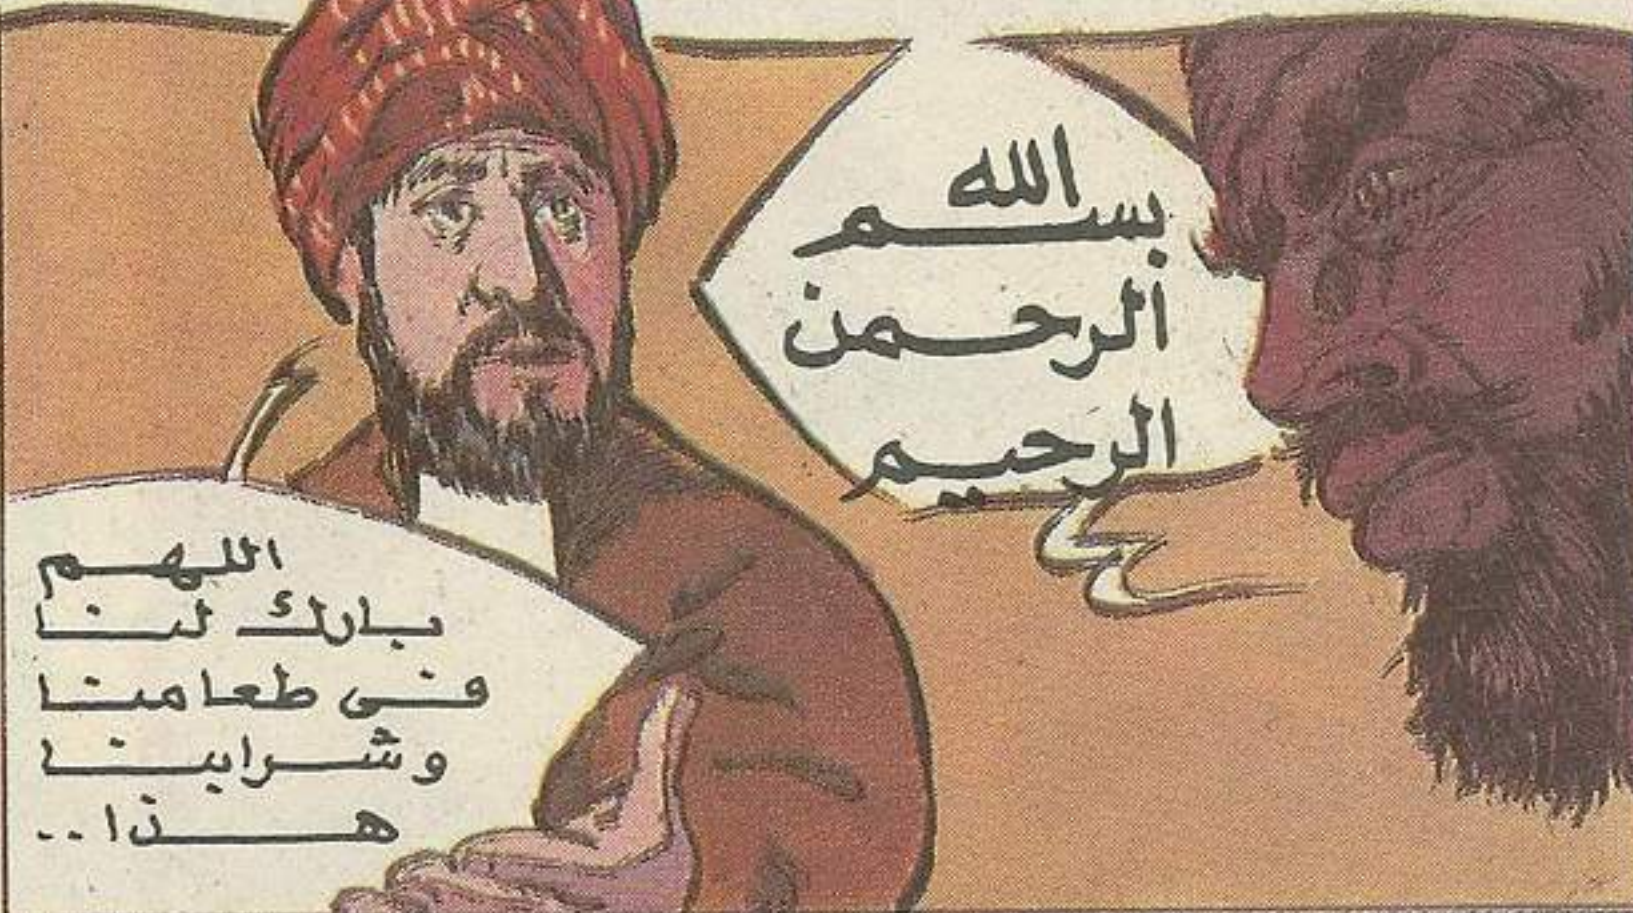 بسم الله
الرحمن
الرحيم
اللهم
بارك لنا
فى طعامنا
وشرابنا
هذا..